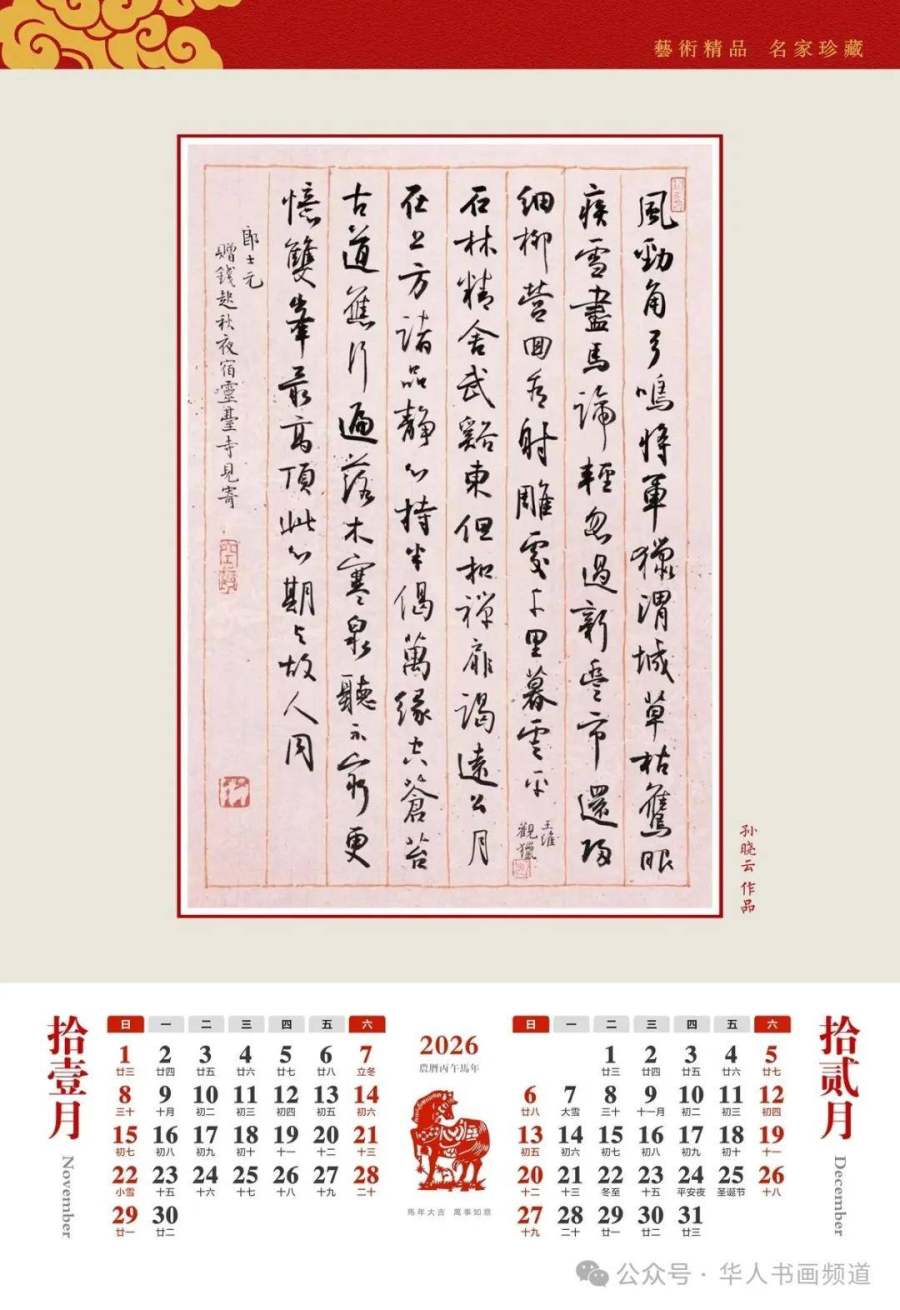 藝術精品 名家珍藏
風勁角弓鳴將軍獵渭城草枯鷹眼
疾雪盡馬蹄輕忽過新豐市還歸
細柳營回看射雕處千里暮雲平
王維
觀獵
石林精舍武谿東但扣禪扉謁遠公月
在上方諸品静心持半偈萬緣空蒼苔
古道應行遍落木寒泉聽不窮更
憶雙峯最高頂此心期与故人同
郎士元
贈錢起秋夜宿靈臺寺見寄
孙晓云 作品
拾壹月
November
日 一 二 三 四 五 六
1 2 3 4 5 6 7
廿三 廿四 廿五 廿六 廿七 廿八 立冬
8 9 10 11 12 13 14
三十 十月 初二 初三 初四 初五 初六
15 16 17 18 19 20 21
初七 初八 初九 初十 十一 十二 十三
22 23 24 25 26 27 28
小雪 十五 十六 十七 十八 十九 二十
29 30
廿一 廿二
2026
農曆丙午馬年
馬年大吉 萬事如意
日 一 二 三 四 五 六
1 2 3 4 5
廿三 廿四 廿五 廿六 廿七
6 7 8 9 10 11 12
廿八 大雪 三十 十一月 初二 初三 初四
13 14 15 16 17 18 19
初五 初六 初七 初八 初九 初十 十一
20 21 22 23 24 25 26
十二 十三 冬至 十五 平安夜 圣诞节 十八
27 28 29 30 31
十九 二十 廿一 廿二 廿三
拾贰月
December
公众号 · 华人书画频道